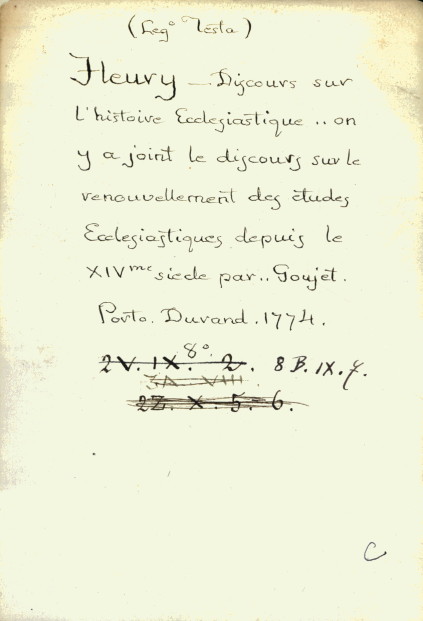 (Leg° Testa)
Fleury – Discours sur
l'histoire Ecclesiastique .. on
y a joint le discours sur le
renouvellement des études
Ecclesiastiques depuis le
XIVme siecle par .. Goujet.
Porto. Durand. 1774.
8°
2V. IX. 2. 8 B. IX. 7.
3A VIII
2Z. X. 5-6.
C